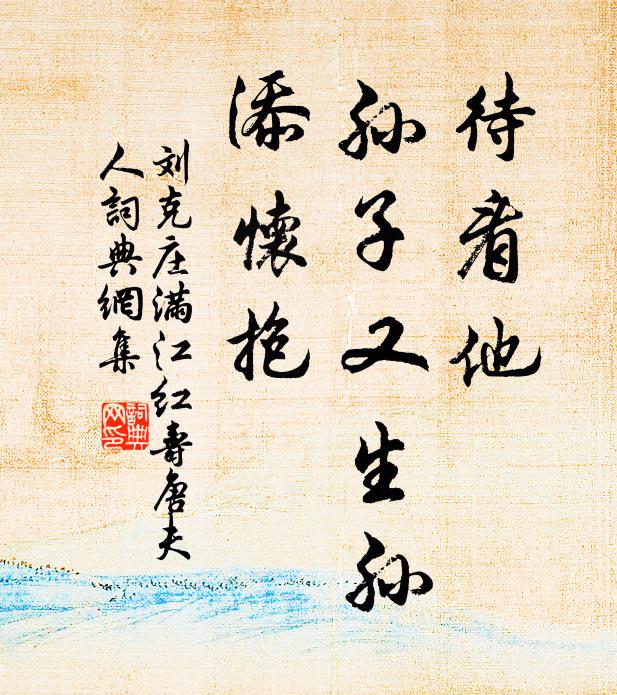 待看他
孙子又生孙
添懷抱
刘克庄满江红壽唐夫
人詞典網集
詞典
网印